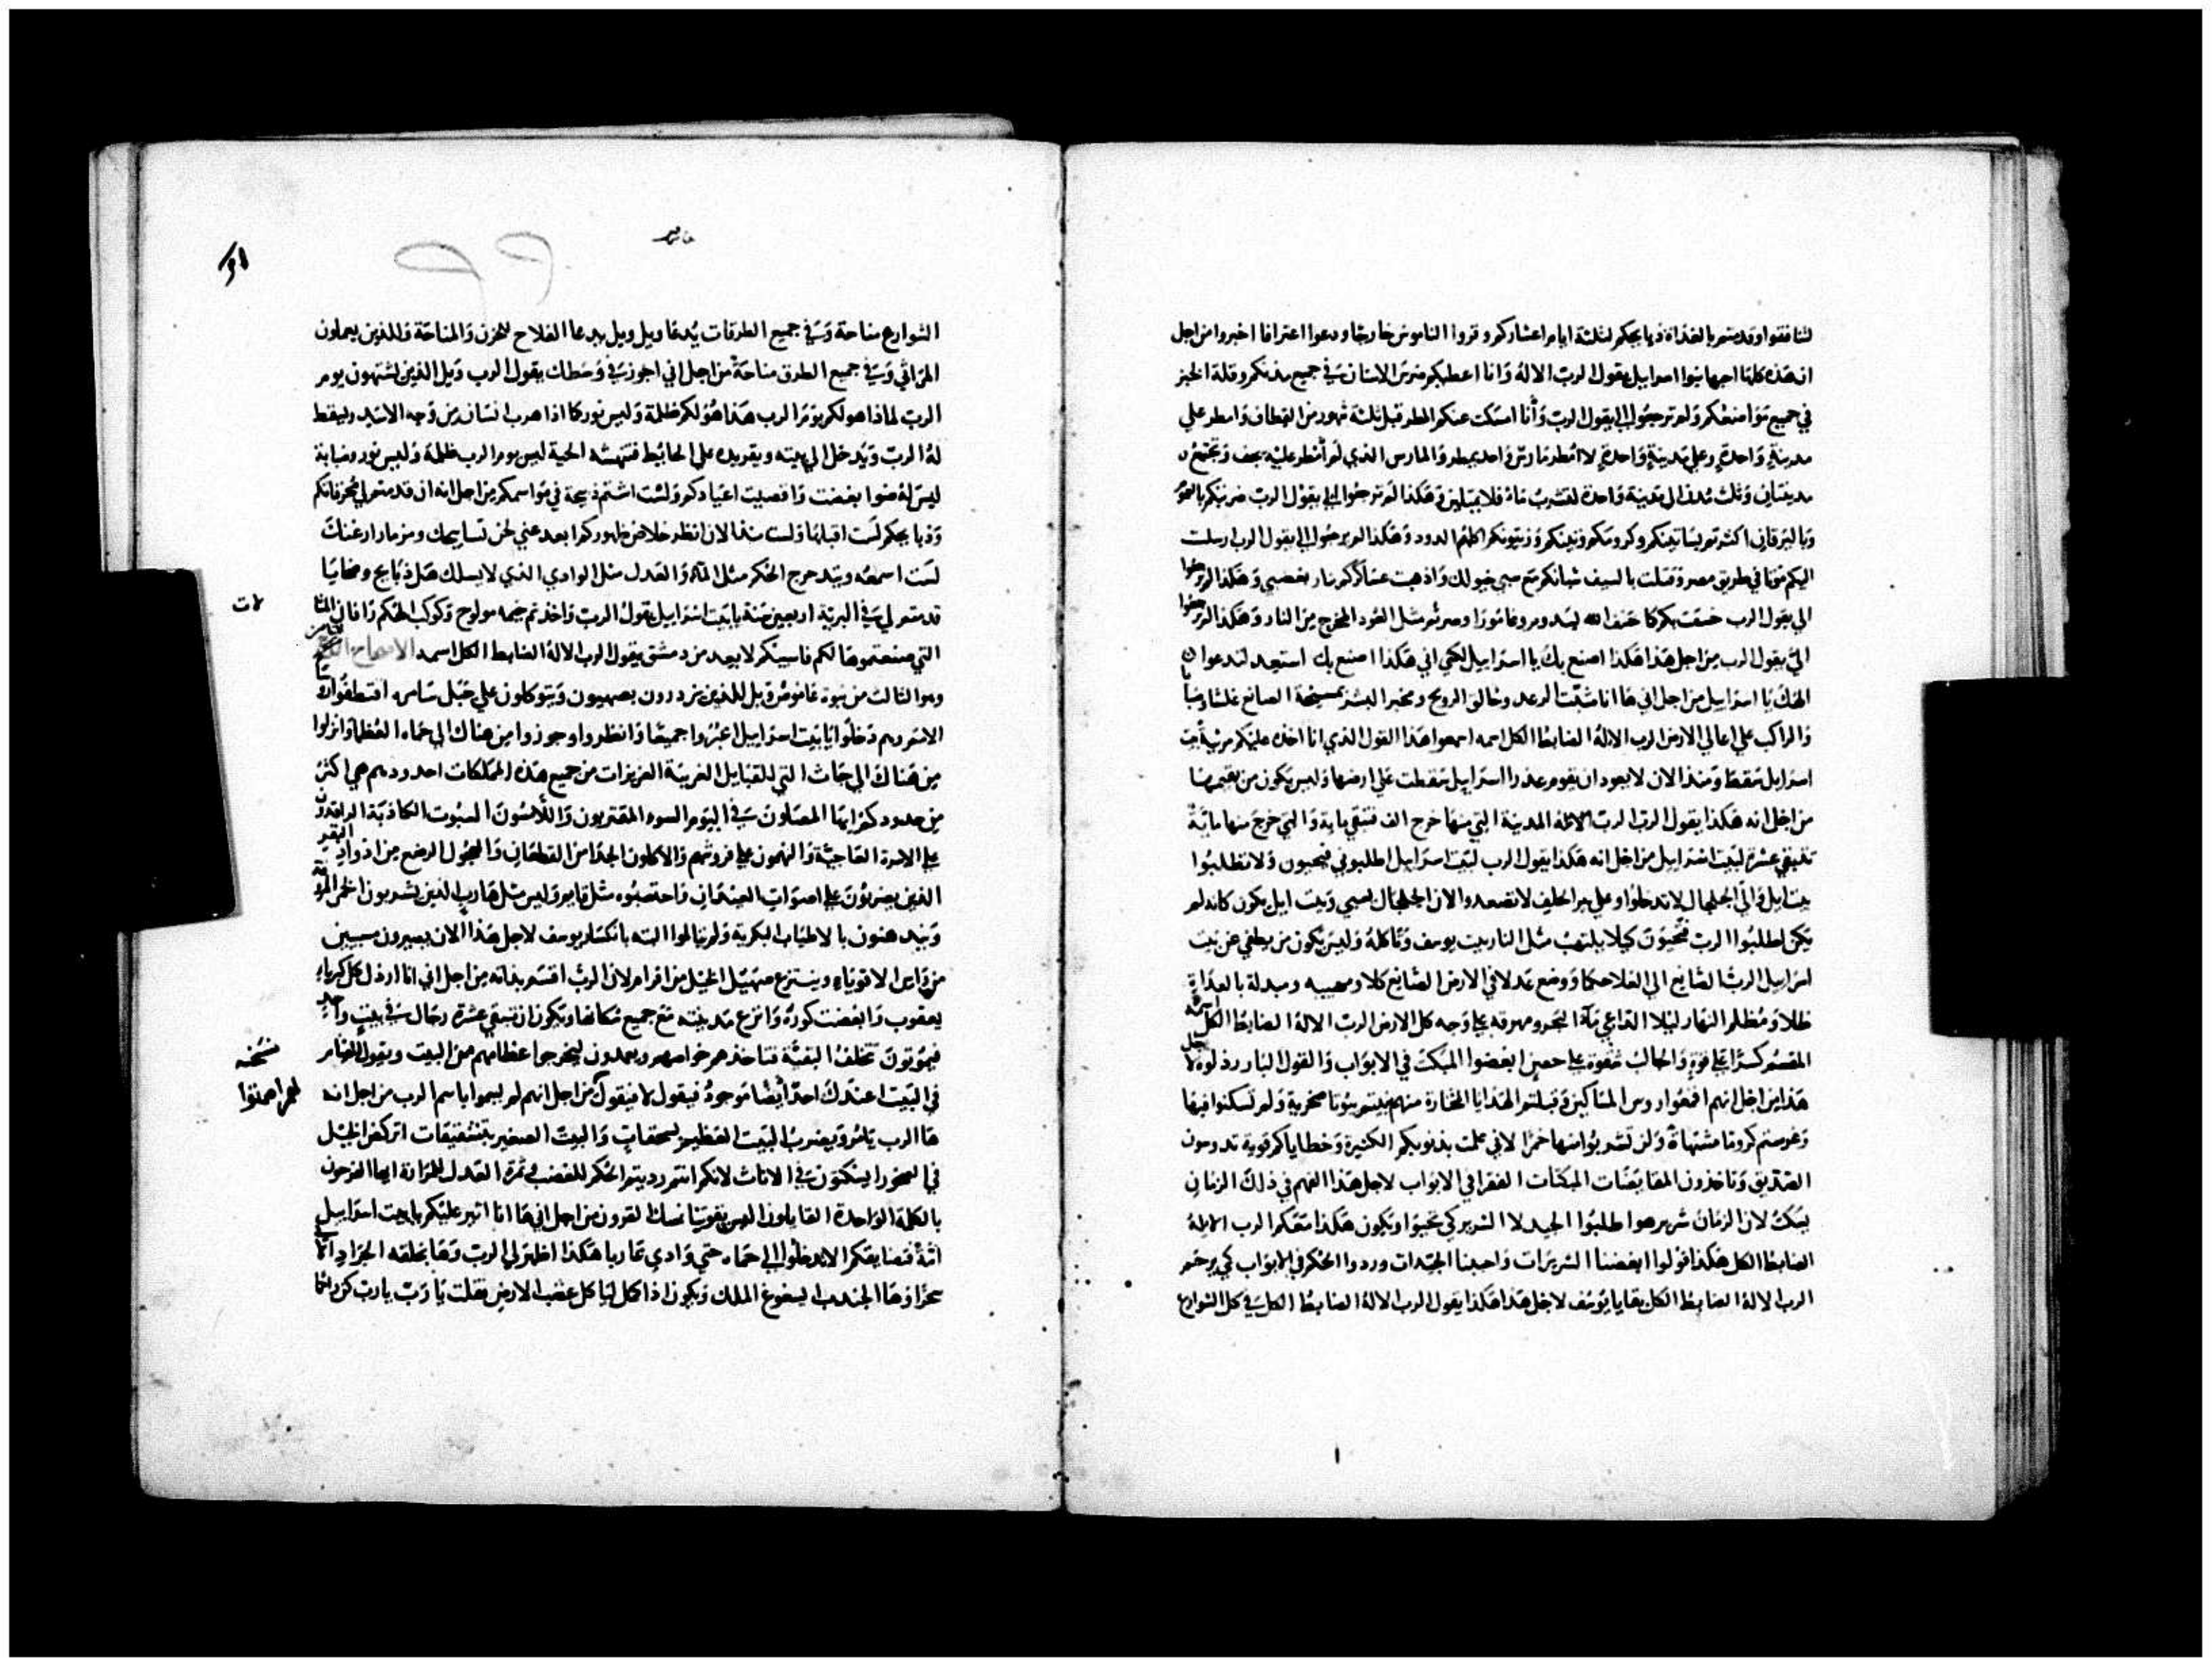 لتنافقوا وقدمتم بالغداة ذبايحكم لثلثة ايام اعشاركم وقروا الناموس خارجا ودعوا اعترافا اخبروا من اجل
ان هذه كلها احبها بنوا اسراييل يقول الرب الاله وانا اعطيكم ضرس الاسنان في جميع مدنكم وقلة الخبز
في جميع مواضعكم ولم ترجعوا الي يقول الرب وأنا امسكت عنكم المطر قبل ثلثة شهور من القطاف وامطر علي
مدينة واحدة وعلي مدينة واحدة لا امطر مارس واحد يمطر والمارس الذي لم أمطر عليه يجف وتجتمع
مدينتان وثلث مدن الي مدينة واحدة لتشرب ماء فلا يمتلين وهكذا لم ترجعوا الي يقول الرب ضربتكم
وباليرقان اكثرتم بساتينكم وكرومكم وتينكم وزيتونكم اكلهم الدود وهكذا لم ترجعوا الي يقول الرب ارسلت
اليكم موتا في طريق مصر وقتلت بالسيف شبانكم مع سبي خيولك واذهبت عساكركم بنار بغضبي وهكذا لم ترجعوا
الي يقول الرب خسفت بكم كما خسف الله بسدوم وغامورا وصرتم مثل العود المخرج من النار وهكذا لم ترجعوا
الي يقول الرب من اجل هذا هكذا اصنع بك يا اسراييل لكي اني هكذا اصنع بك استعد لتدعوا
الهك يا اسراييل من اجل اني ها انا مثبت الرعد وخالق الروح ومخبر البشر بمسيحه الصانع غلسا وضبابا
والراكب علي اعالي الارض الرب الاله الضابط الكل اسمه اسمعوا هذا القول الذي انا اخذه عليكم مرثية بيت
اسراييل سقط ومنذ الان لا يعود ان يقوم عذرا اسراييل سقطت علي ارضها وليس يكون من يقيمها
من اجل انه هكذا يقول الرب الرب الاله المدينة التي منها خرج الف فتبقي ماية والتي خرج منها ماية
تبقي عشرة لبيت اسراييل من اجل انه هكذا يقول الرب لبيت اسراييل اطلبوني فتحيون ولا تطلبوا
بيت ايل والي الجلجال لا تدخلوا وعلي بير الحلف لا تصعدوا لان الجلجال لسبي وبيت ايل يكون كانه لم
يكن اطلبوا الرب فتحيون كيلا يلتهب مثل النار بيت يوسف وتاكله وليس يكون من يطفي عن بيت
اسراييل الرب الصانع الي العلا حكما ووضع عدلا في الارض الصانع كلا ومغيره ومبدله بالغداة
ظلا ومظلم النهار ليلا الداعي ماء البحر ومهرقه علي وجه كل الارض الرب الاله الضابط الكل اسمه
المقسم كسرا علي قوة والجالب شقوة علي حصن ابغضوا المبكت في الابواب والقول البار رذلوه لاجل
هذا من اجل انهم اقمعوا روس المساكين وقبلتم الهدايا المختارة منهم بنيتم بيوتا منحوته ولم تسكنوا فيها
وغرستم كروما مشتهاة ولن تشربوا منها خمرا لاني علمت بذنوبكم الكثيرة وخطاياكم قوية تدوسون
الصديق وتاخذون المقايضات المبكتات الفقرا في الابواب لاجل هذا الفهم في ذلك الزمان
يسكت لان الزمان شرير هو اطلبوا الجيد لا الشرير كي تحيوا ويكون هكذا معكم الرب الاله
الضابط الكل هكذا قولوا ابغضنا الشريرات واحببنا الجيدات وردوا الحكم في الابواب كي يرحم
الرب الاله الضابط الكل بقايا يوسف لاجل هذا هكذا يقول الرب الاله الضابط الكل في كل الشوارع
الشوارع مناحة وفي جميع الطرقات يُدعا ويل ويل يدعا الفلاح للحزن والمناحة وللذين يعملون
المراثي وفي جميع الطرق مناحة من اجل اني اجوز في وسطك يقول الرب ويل للذين يشتهون يوم
الرب لماذا هو لكم يوم الرب هذا هو لكم ظلمة وليس نور كما اذا هرب انسان من وجه الاسد وليقط
له الدب ويدخل الي بيته ويفرد يده علي الحايط فتنهشه الحية ليس يوم الرب ظلمة وليس نور وضبابة
ليس له ضوا بغضت واقصيت اعيادكم ولست اشتم ذبيحة في مواسمكم من اجل انه ان قدمتم لي محرقاتكم
وذبايحكم لست اقبلها ولست منذ الان انظر خلاص ظهوركم ابعد عني لحن تسابيحك ومزمار ارغنك
لست اسمعه ويتدحرج الحكم مثل الماء والعدل مثل الوادي الذي لا يسلك هل ذبايح وضحايا
قدمتم لي في البرية اربعين سنة يا بيت اسراييل يقول الرب واخذتم خيمه مولوح وكوكب الهكم رافان
التي صنعتموها لكم فاسبيكم لابعد من دمشق يقول الرب الاله الضابط الكل اسمه الاصحاح
وهو الثالث من نبوة عاموص ويل للذين يزدرون بصهيون ويتوكلون علي جبل سامره اقتطفوا
الامم ودخلوا يا بيت اسراييل اعبروا جميعا وانظروا وجوزوا من هناك الي حماه العظما وانزلوا
من هناك الي جاث التي للقبايل الغريبة العزيزات من جميع هذه المملكات احدودهم هي اكثر
من حدودكم ايها المصلون في اليوم السوء المقتربون واللامسون السبوت الكاذبة الراقدون
علي الاسرة العاجية والنهمون علي فروشهم والاكلون الجدا من القطعان والعجول الرضع من اذواد البقر
الذين يصرون علي اصوات العيدان واحتسبوه مثل قايم وليس مثل هارب الذين يشربون الخمر
ويتدهنون بالاطياب البكرية ولم يتالموا البته بانكسار يوسف لاجل هذا الان يصيرون مسبيين
من راس الاقوياء وينتزع صهيل الخيل من افرام لان الرب اقسم بذاته من اجل اني انا ارذل كل كبرياء
يعقوب وابغضت كوره وانزع مدينته مع جميع سكانها ويكون ان تبقي عشرة رجال في بيت واحد
فيموتون تتخلف البقية فتاخذهم خواصهم ويعمدون ليخرجوا عظامهم من البيت ويقول
في البيت اعندك احد ايضا موجود فيقول لا فيقول من اجل انهم لم يسموا باسم الرب من اجل انه
ها الرب يامر ويضرب البيت العظيم بسحقات والبيت الصغير بتشقيقات اتركض الخيل
في الصخور ايسكتون في الاناث لانكم انتم رديتم الحكم للغضب وثمرة العدل للمرارة ايها الفرحون
بالكلمة الواحدة القايلون اليس بقوتنا نمسك القرون من اجل اني ها انا اثير عليكم يا بيت اسراييل
امة فتضايقكم الا تدخلوا الي حماه حتي وادي غاربا هكذا اظهر لي الرب وها بخلقه الجراد
سحرا وها الجندب ليسغوغ الملك ويكون اذا اكمل ليا كل عشب الارض فقلت يا رب يا رب كن راحما
نسخه